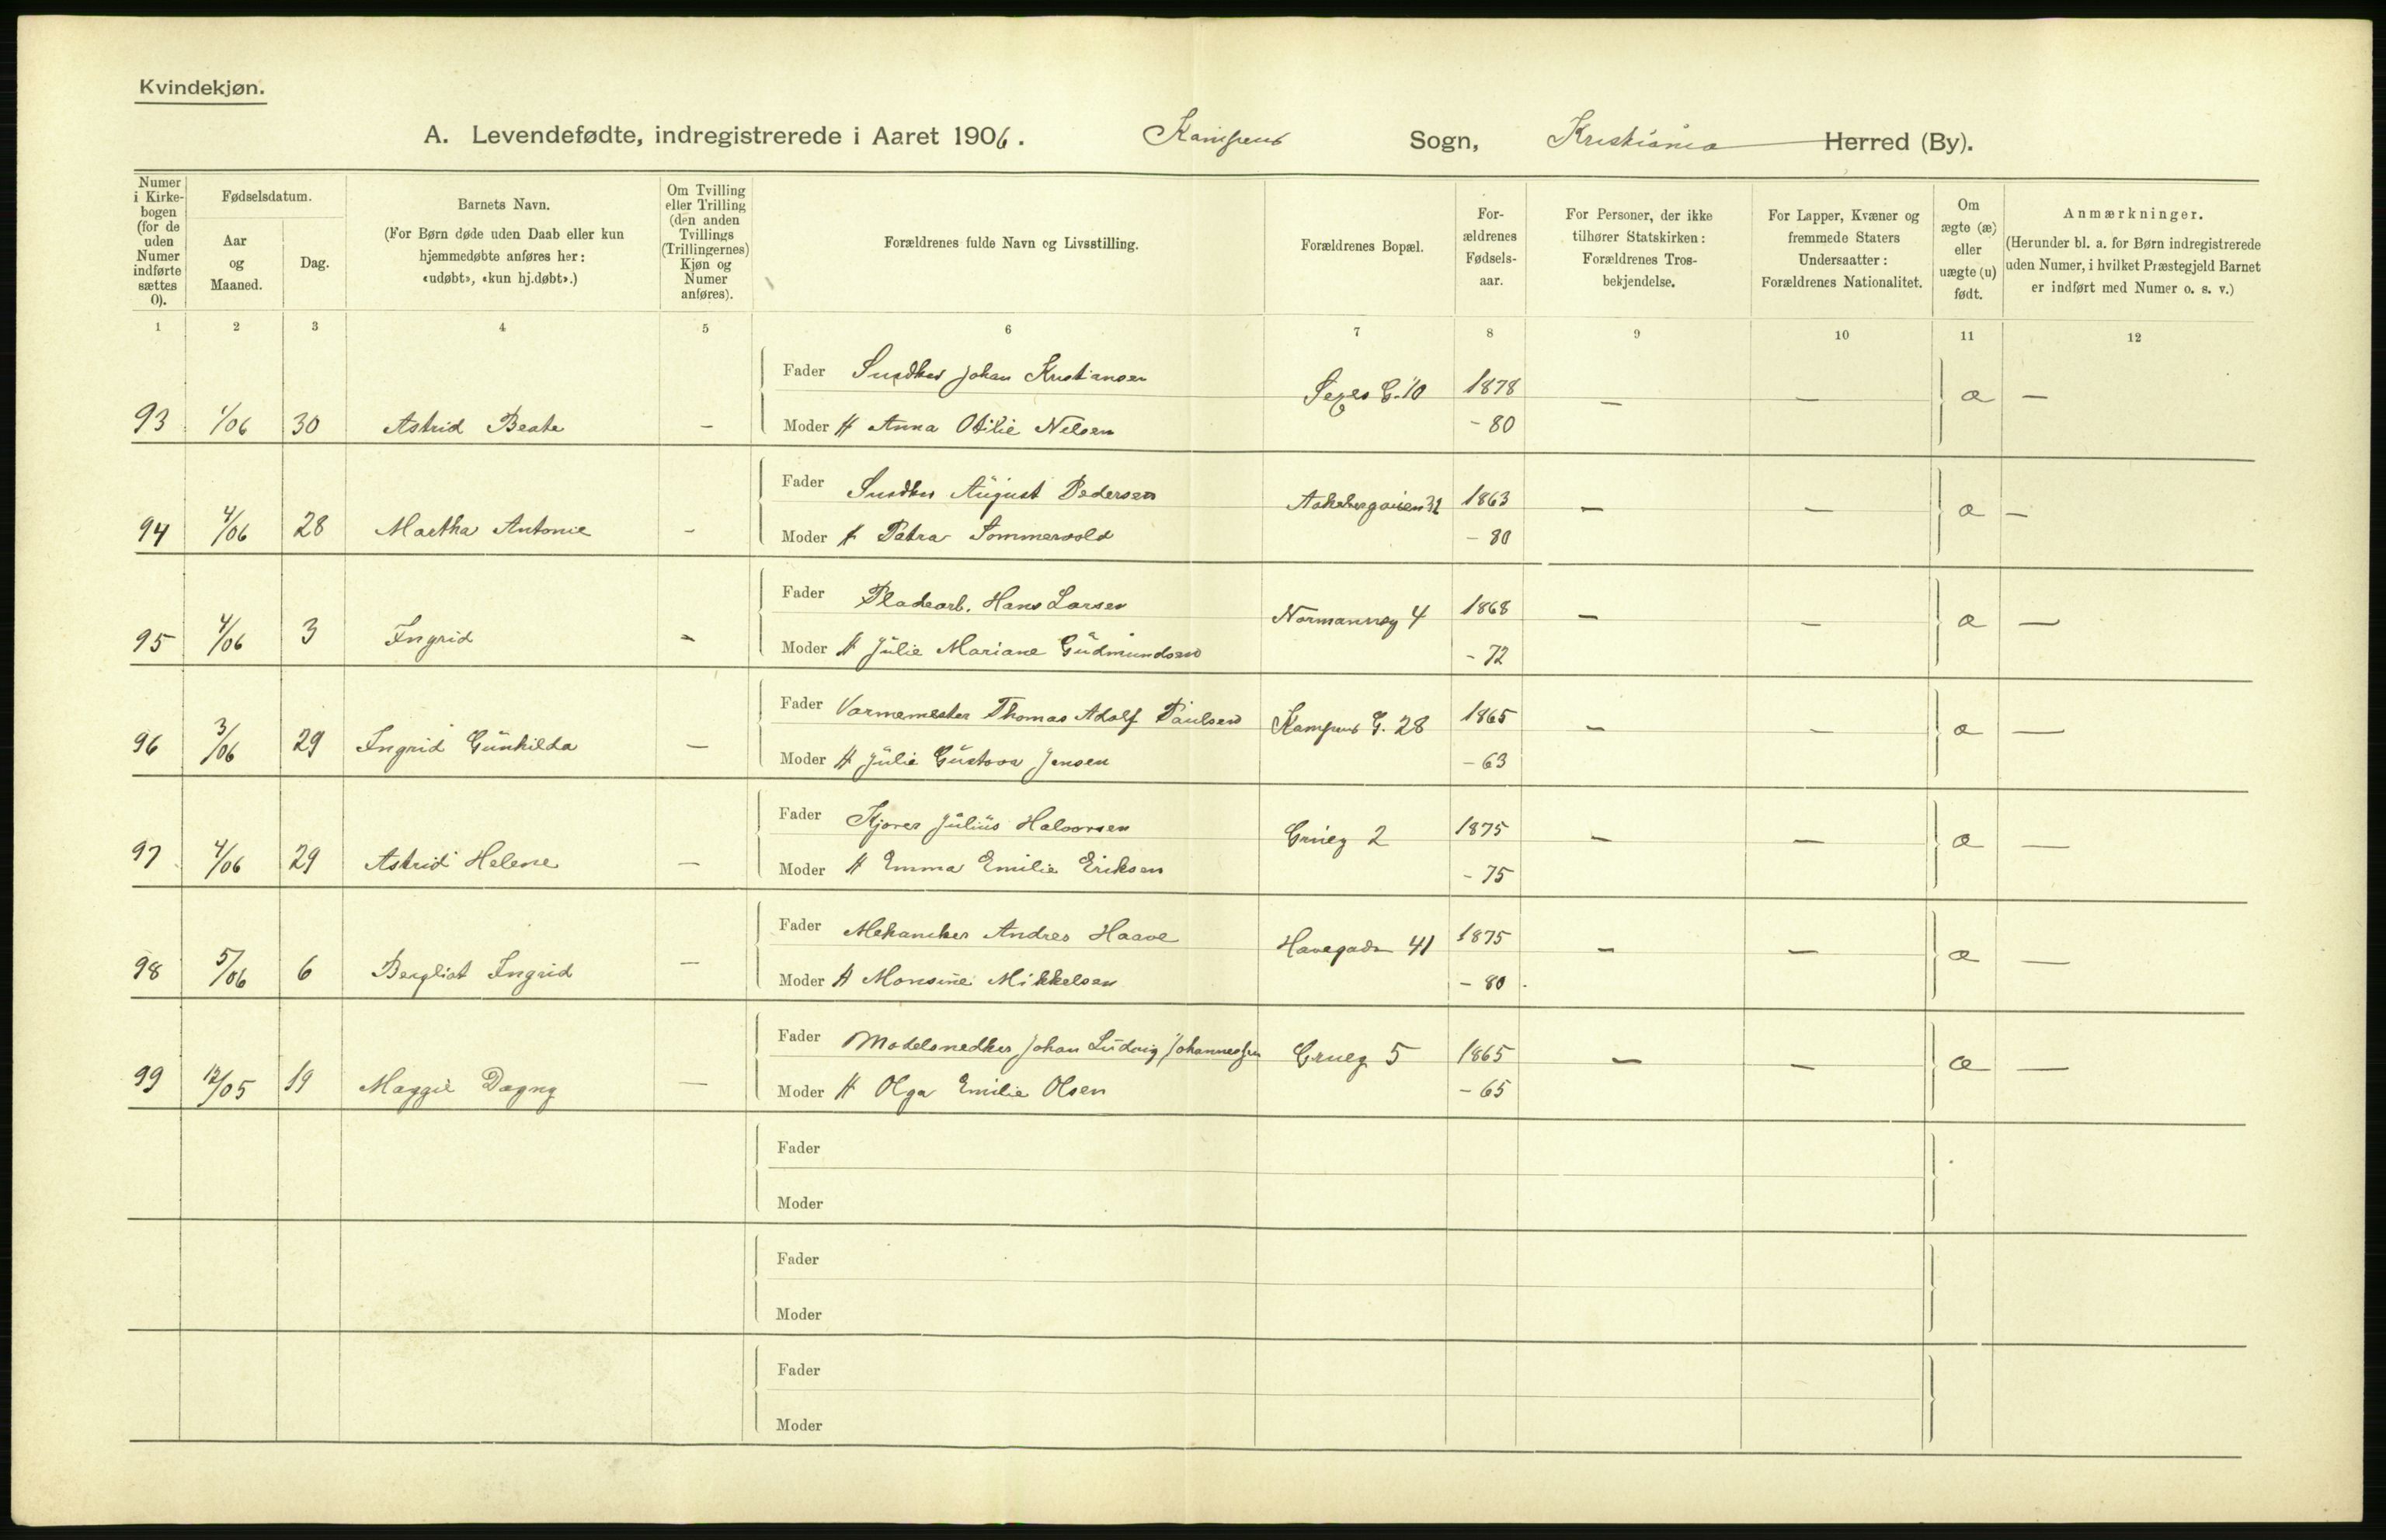 Kvindekjøn.
A. Levendefødte, indregistrerede i Aaret 1906. Kampens Sogn, Kristiania Herred (By).
Numer i Kirkebogen (for de uden Numer indførte sættes 0).
Fødselsdatum.
Aar og Maaned.
Dag.
Barnets Navn.
(For Børn døde uden Daab eller kun hjemmedøbte anføres her: «udøbt», «kun hj.døbt».)
Om Tvilling eller Trilling (den anden Tvillings (Trillingernes) Kjøn og Numer anføres).
Forældrenes fulde Navn og Livsstilling.
Forældrenes Bopæl.
Forældrenes Fødselsaar.
For Personer, der ikke tilhører Statskirken: Forældrenes Trosbekjendelse.
For Lapper, Kvæner og fremmede Staters Undersaatter: Forældrenes Nationalitet.
Om ægte (æ) eller uægte (u) født.
Anmærkninger.
(Herunder bl. a. for Børn indregistrerede uden Numer, i hvilket Præstegjeld Barnet er indført med Numer o. s. v.)
1 2 3 4 5 6 7 8 9 10 11 12
Fader Snedker Johan Kristiansen G. 10 1878 — — æ —
93 1/06 30 Astrid Beate — Moder H Anna Otilie Nelsen - 80
Fader Snedker August Pedersen Aakebergveien 32 1863 — — æ —
94 4/06 28 Martha Antonie — Moder H Petra Sommervold - 80
Fader Pladearb. Hans Larsen Normannsg 4 1868 — — æ —
95 4/06 3 Ingrid — Moder H Julie Mariane Gudmundsen - 72
Fader Varmemester Thomas Adolf Paulsen Kampens G. 28 1865 — — æ —
96 3/06 29 Ingrid Gunhilda — Moder H Julie Gustava Jensen - 63
Fader Kjører Julius Halvorsen Grueg 2 1875 — — æ —
97 4/06 29 Astrid Helene — Moder H Emma Emilie Eriksen - 75
Fader Mekaniker Andres Haave Havegaden 41 1875 — — æ —
98 5/06 6 Bergliot Ingrid — Moder H Monsine Mikkelsen - 80
Fader Modelsnedker Johan Ludvig Johannessen Grueg 5 1865 — — æ —
99 12/05 19 Maggie Dagny — Moder H Olga Emilie Olsen - 65
Fader
Moder
Fader
Moder
Fader
Moder